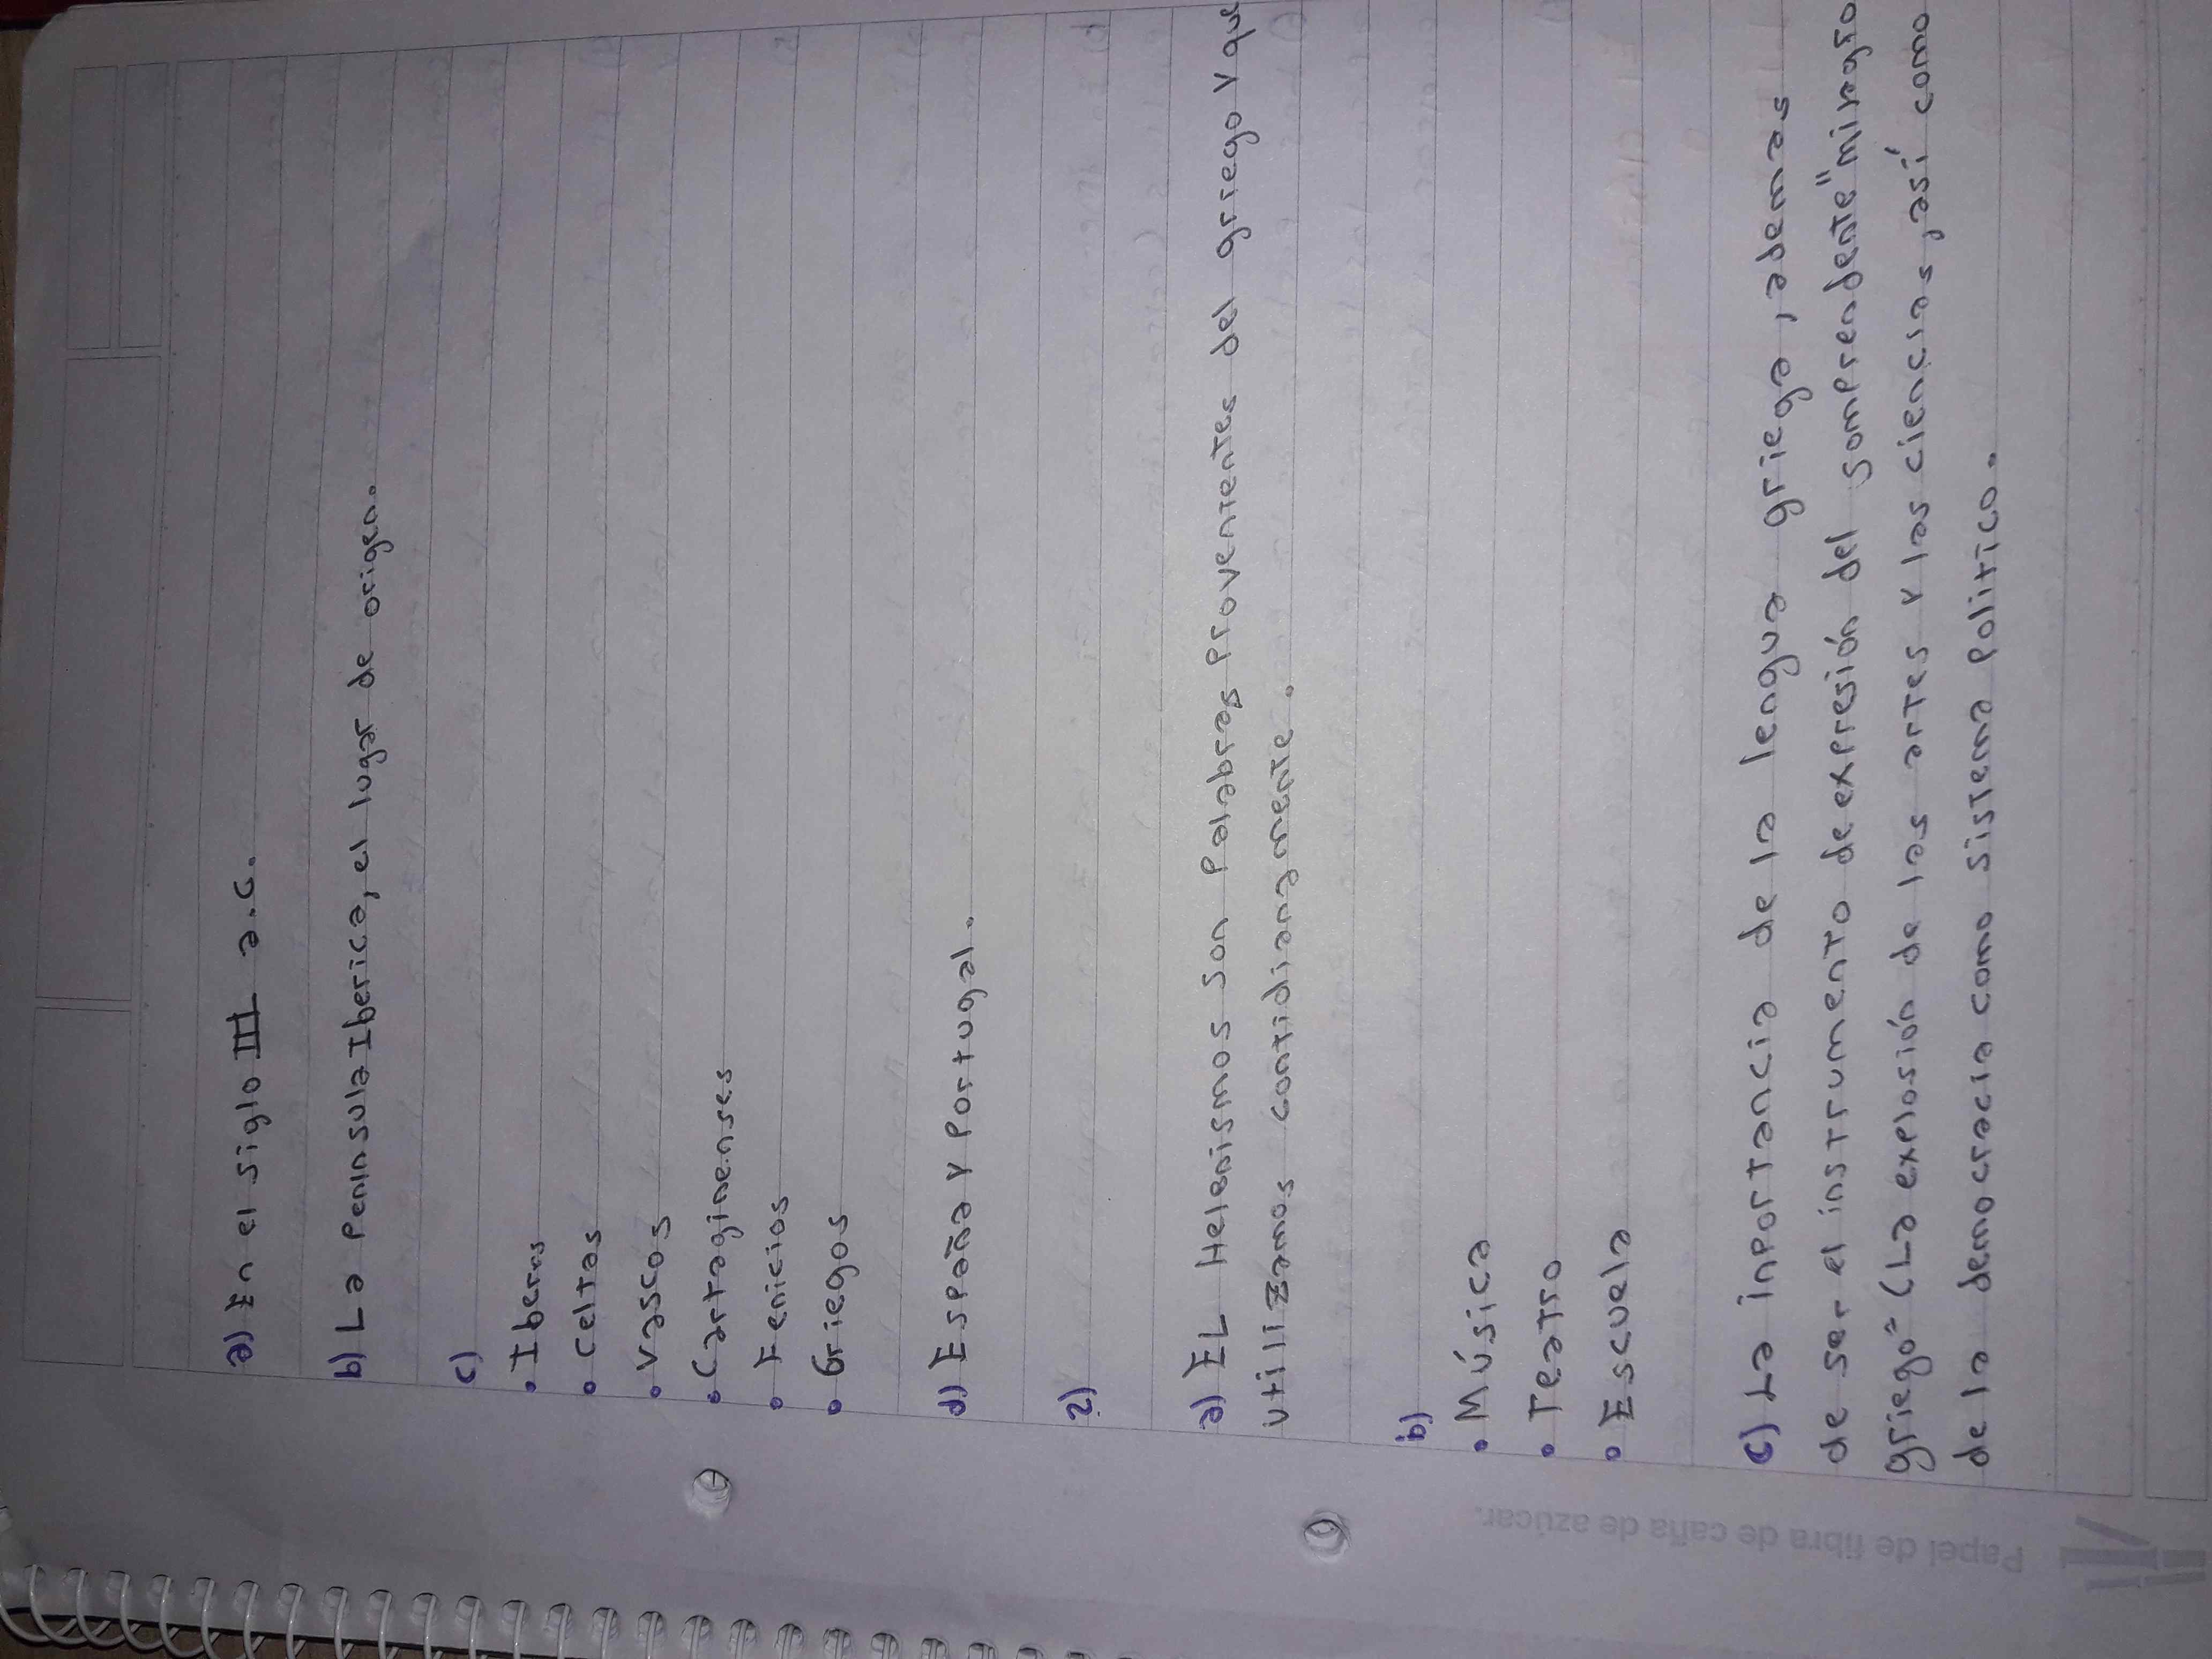 a) En el siglo III a.c.
b) La Peninsula Iberica, el lugar de origen.
c)
• Iberos
• Celtas
• Vascos
• Cartaginenses
• Fenicios
• Griegos
d) España y Portugal.
2)
a) EL Helenismos son Palabras provenientes del griego y que
utilizamos contidianamente.
b)
• Música
• Teatro
• Escuela
c) La inportancia de la lengua griega, ademas
de ser el instrumento de expresión del somprendente "milagro
griego" (La explosión de las artes y las ciencias, así como
de la democracia como sistema politico.
Papel de fibra de caña de azúcar.